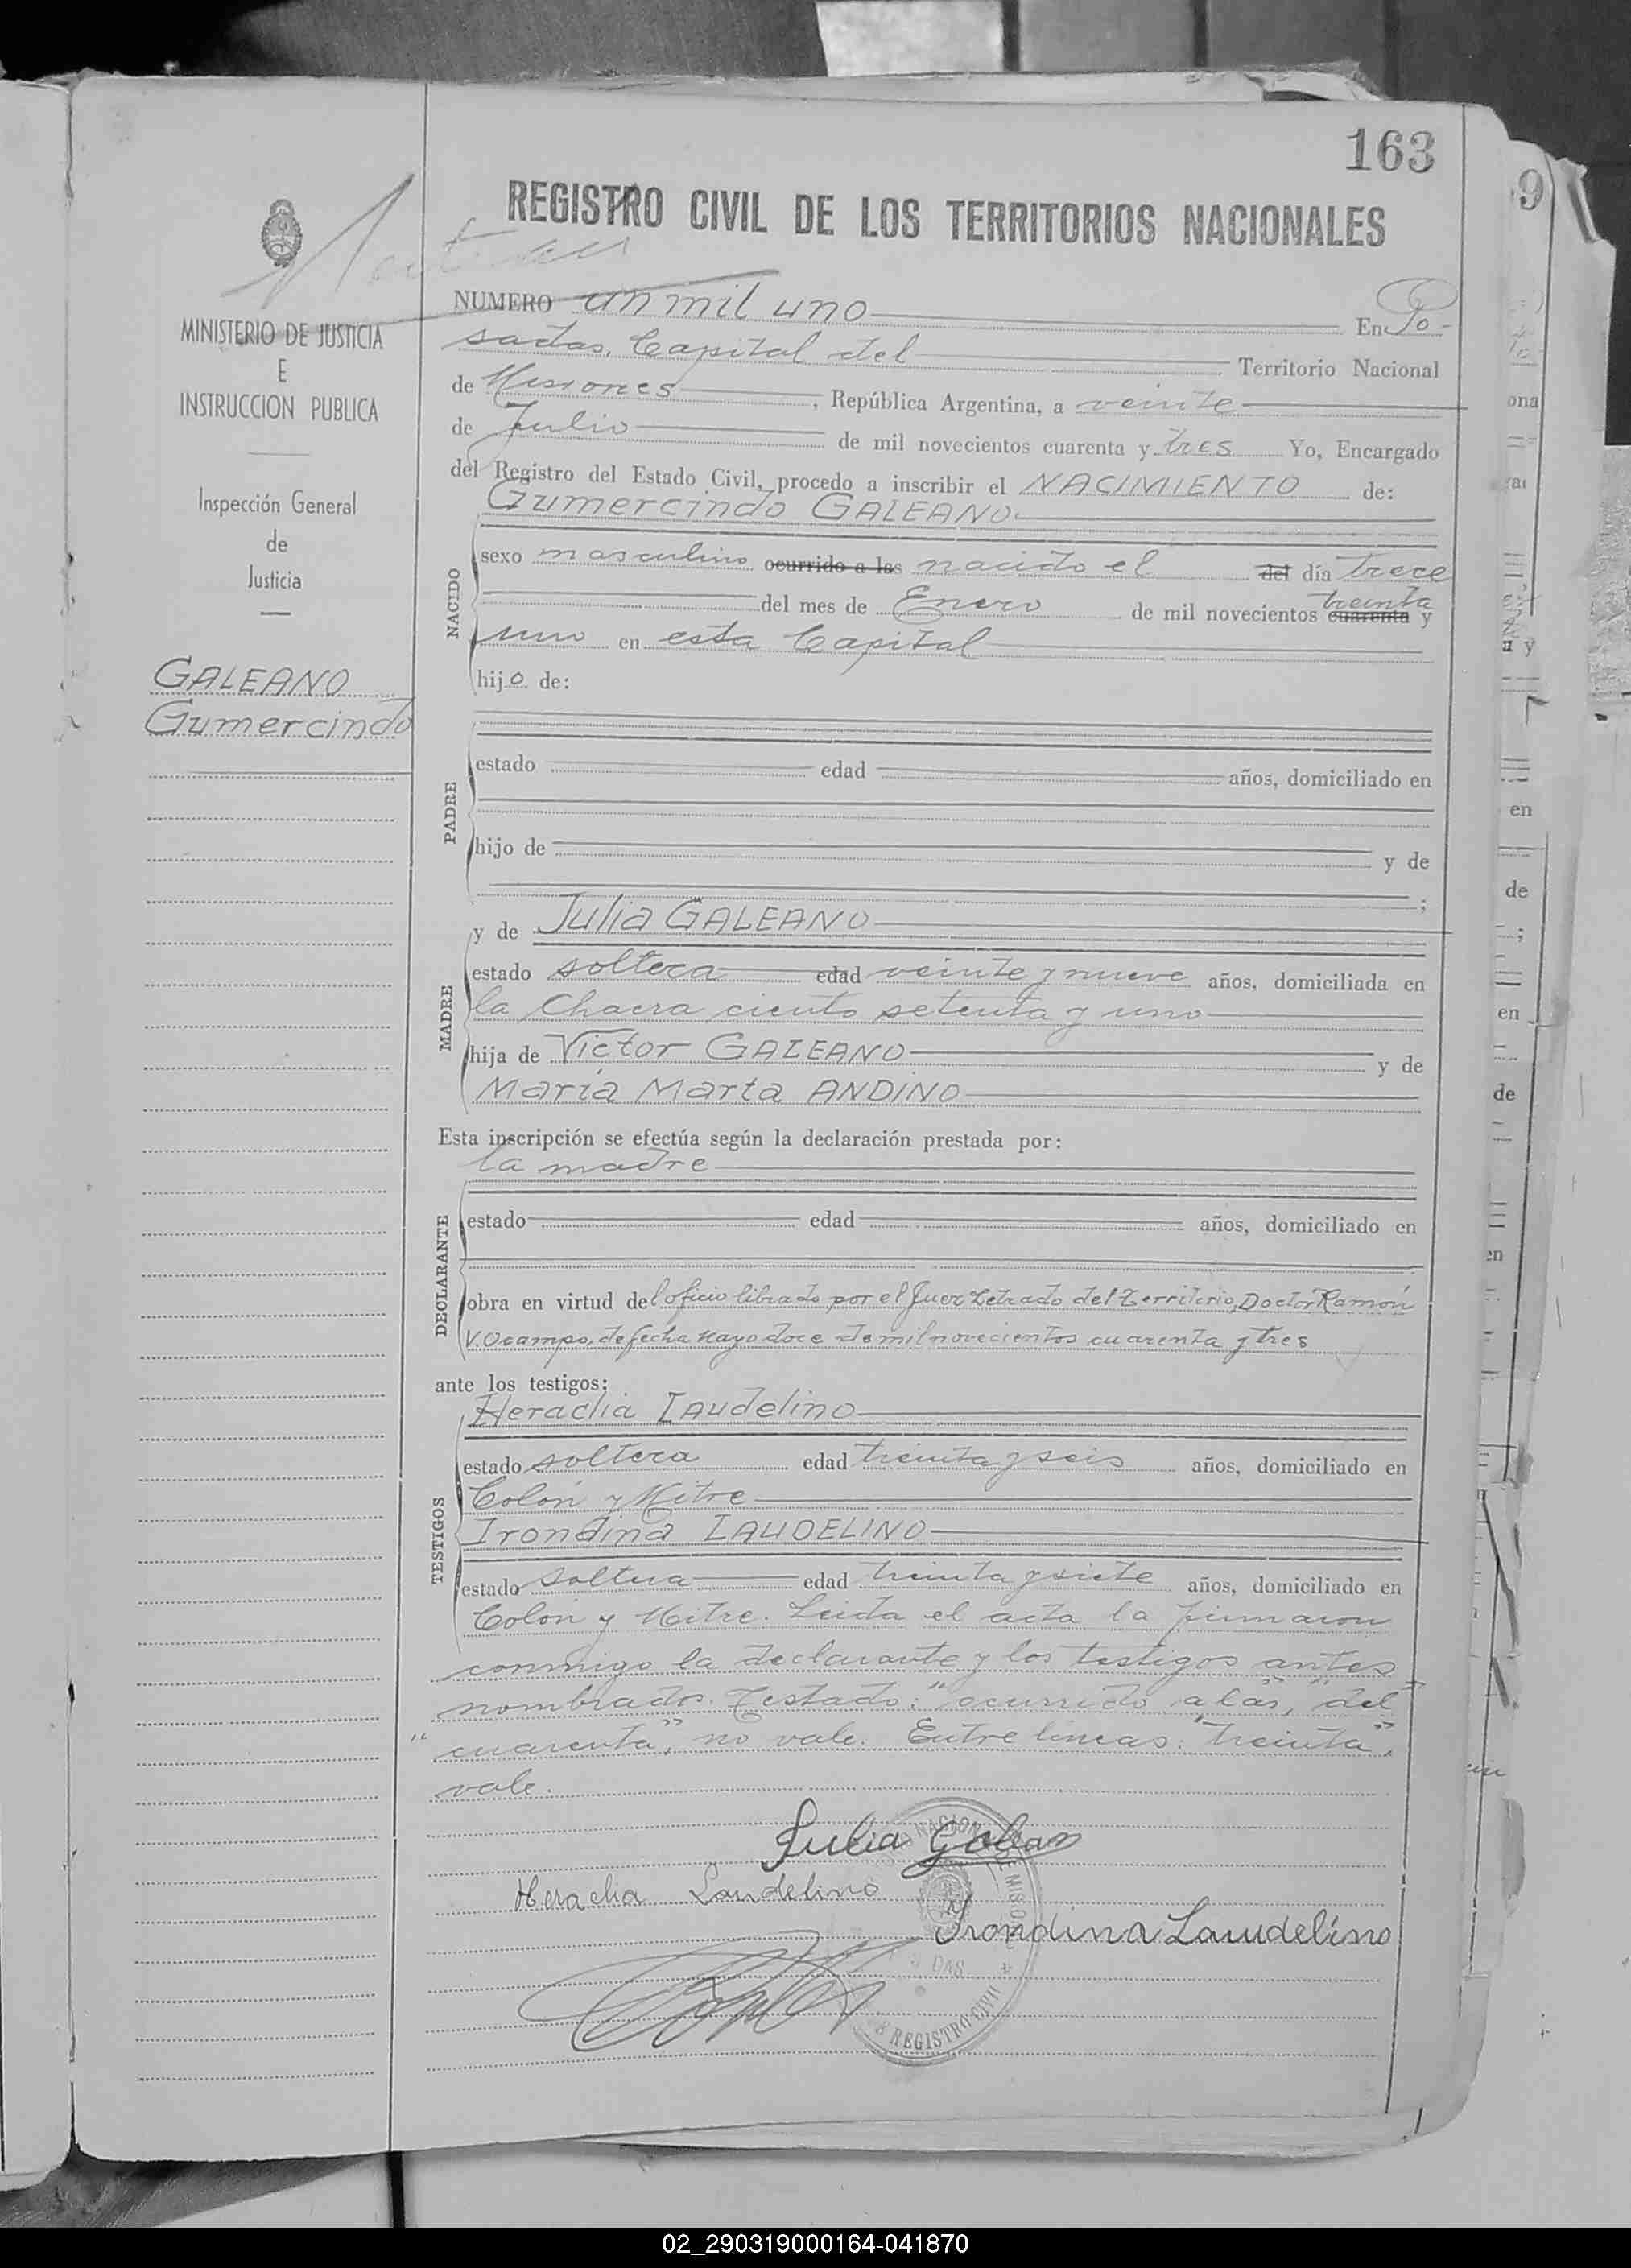 163
REGISTRO CIVIL DE LOS TERRITORIOS NACIONALES
MINISTERIO DE JUSTICIA
E
INSTRUCCION PUBLICA
Inspección General
de
Justicia
GALEANO
Gumercindo
NUMERO un mil uno En Po-
sadas, Capital del Territorio Nacional
de Misiones, República Argentina, a veinte
de Julio de mil novecientos cuarenta y tres Yo, Encargado
del Registro del Estado Civil, procedo a inscribir el NACIMIENTO de:
Gumercindo GALEANO
NACIDO
sexo masculino ocurrido a las nacido el del día trece
del mes de Enero de mil novecientos treinta cuarenta y
uno en esta Capital
hijo de:
PADRE
estado edad años, domiciliado en
hijo de y de
;
MADRE
y de Julia GALEANO
estado soltera edad veinte y nueve años, domiciliada en
la Chacra ciento setenta y uno
hija de Victor GALEANO y de
María Marta ANDINO
Esta inscripción se efectúa según la declaración prestada por:
la madre
DECLARANTE
estado edad años, domiciliado en
obra en virtud del oficio librado por el Juez Letrado del Territorio, Doctor Ramón
V. Ocampo, de fecha Mayo doce de mil novecientos cuarenta y tres
ante los testigos:
TESTIGOS
Heraclia LAudelino
estado soltera edad treinta y seis años, domiciliado en
Colón y Mitre
Irondina LAUDELINO
estado soltera edad treinta y siete años, domiciliado en
Colón y Mitre. Leida el acta la firmaron
conmigo la declarante y los testigos antes
nombrados. Testado: "ocurrido a las", "del"
"cuarenta", no vale. Entre lineas: "treinta",
vale.
Julia Galean
Heraclia Laudelino
Irondina Laudelino
REGISTRO CIVIL
02_290319000164-041870